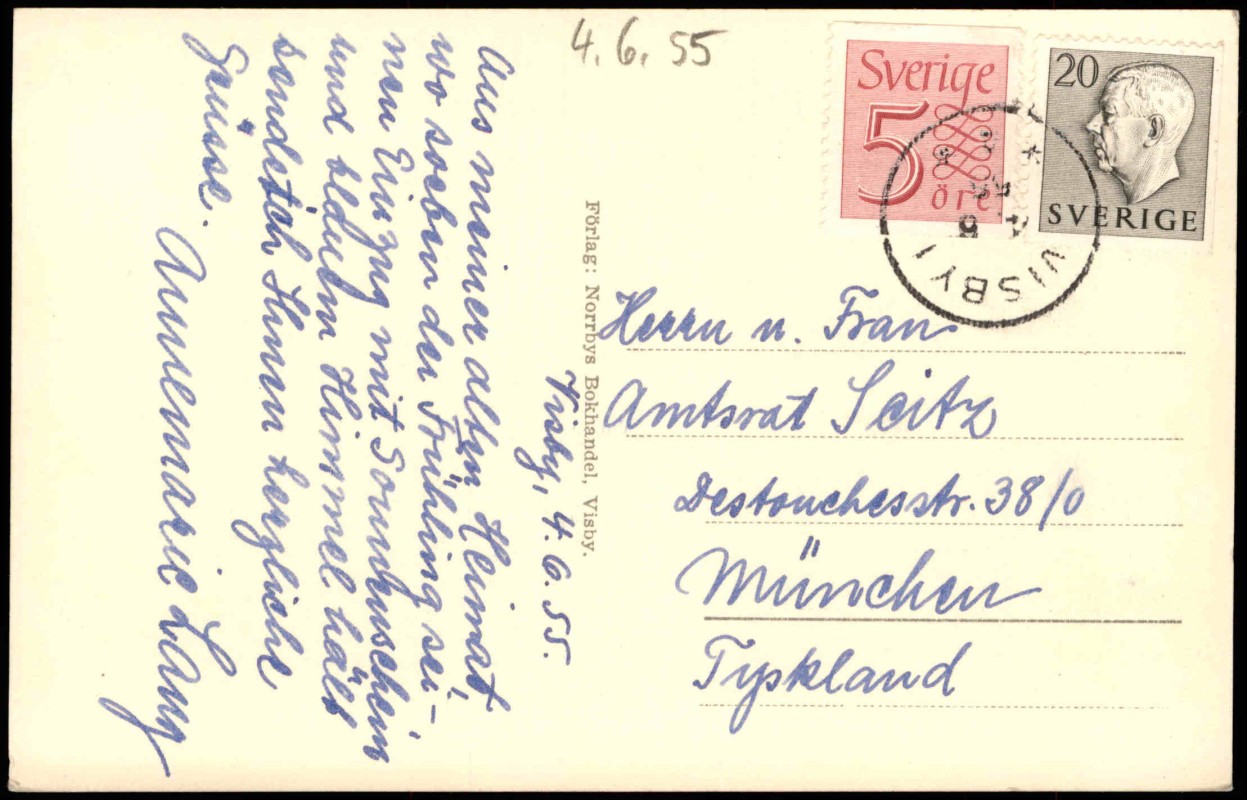 4.6.55
Sverige
5
öre
20
SVERIGE
VISBY 1
Visby, 4.6.55.
Aus meiner alten Heimat,
wo soeben der Frühling sei-
nen Einzug mit Sonnenschein
und blauem Himmel hält
sendet ich Ihnen herzliche
Grüsse.
Annemarie Lang
Förlag: Norrbys Bokhandel, Visby.
Herrn u. Frau
Amtsrat Seitz
Destouchesstr. 38/0
München
Tyskland